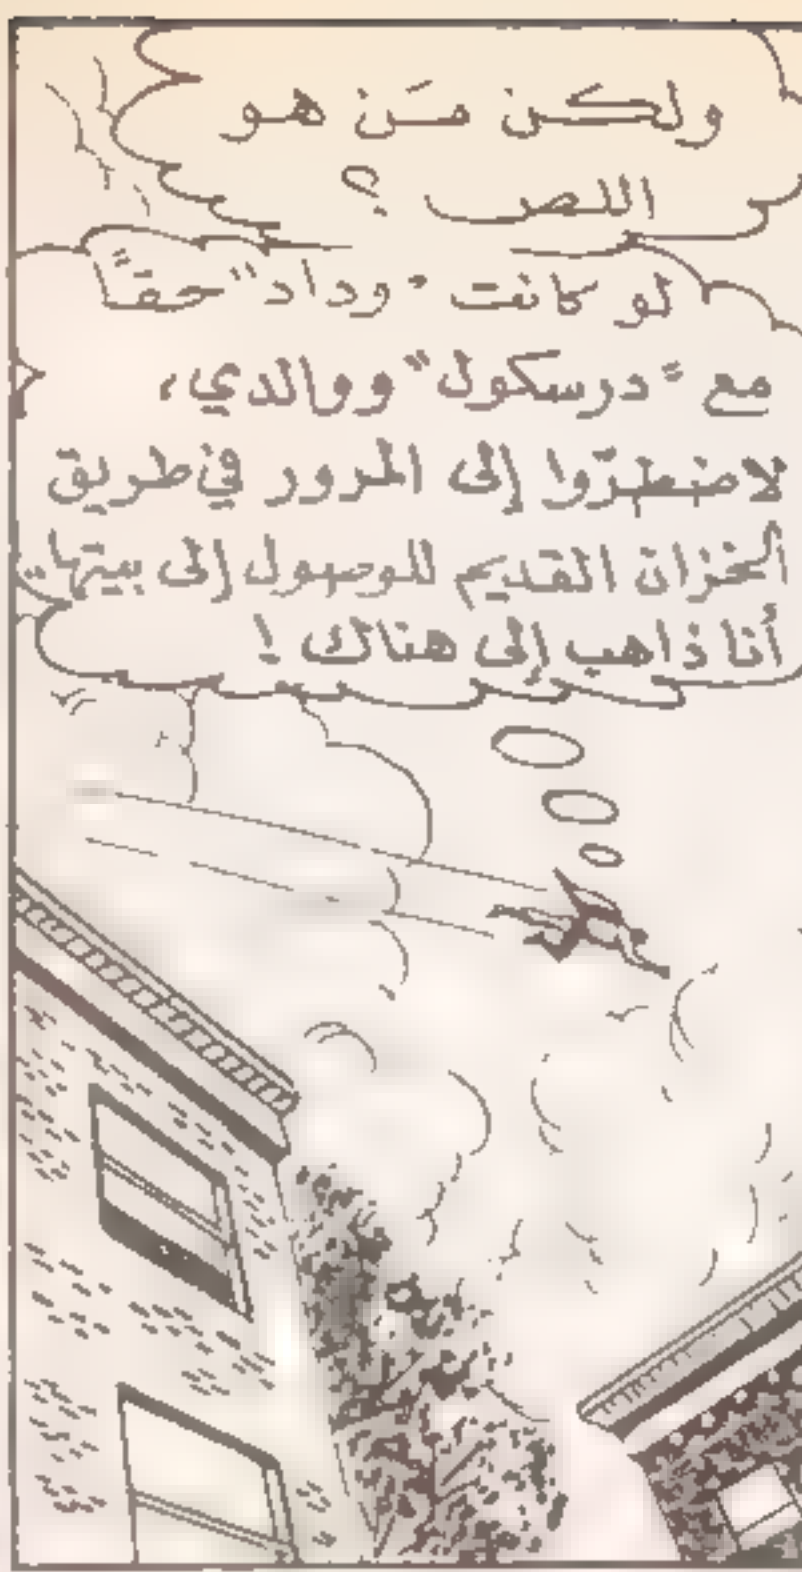 ولكن مَن هو
اللص ؟
لو كانت "وداد" حقًّا
مع "درسكول" ووالدي،
لاضطرّوا إلى المرور في طريق
الخزان القديم للوصول إلى بيتها..
أنا ذاهب إلى هناك !